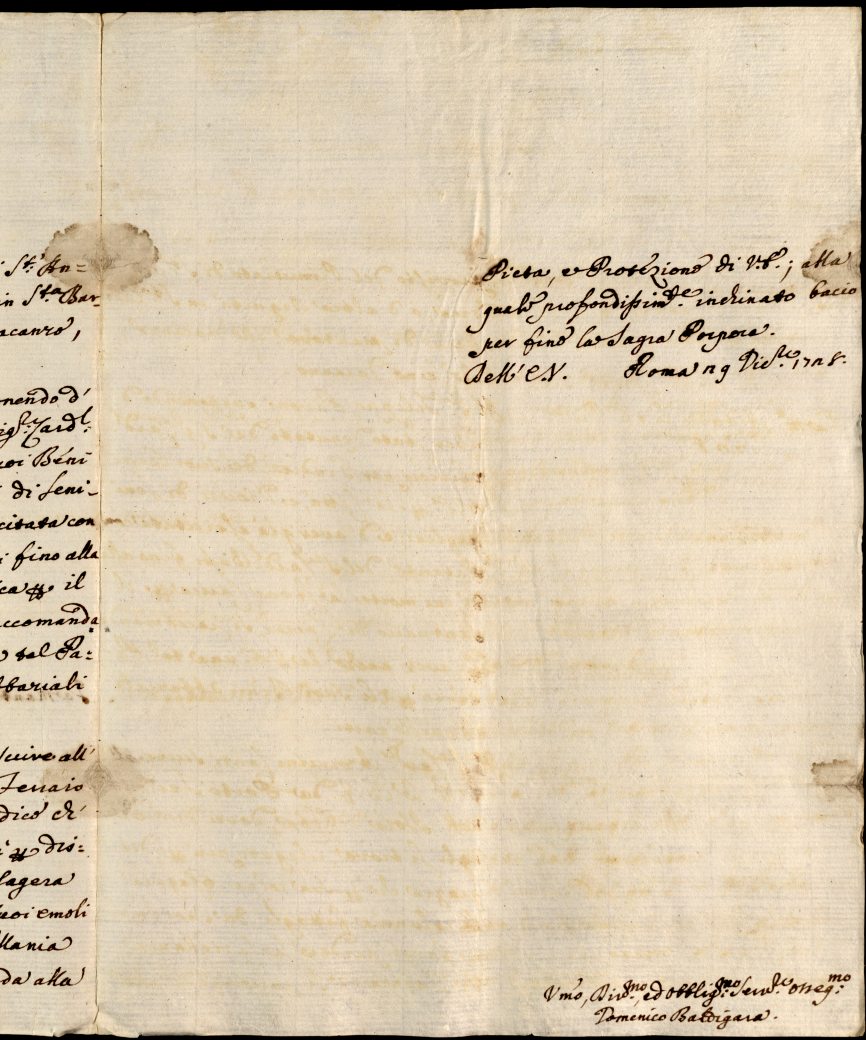 i St: An=
in Sta Bar-
acanze,
nendo d'
Sigr: Card:l
uoi Beni
di Seni-
citata con
i fino alla
ca il
ccomanda
tal Pa:
bariali
all'
Fenaio
dice di
dis:
lagera
emoli
Mania
da alla
Pieta, e Protezione di V.E.; alla
quale profondissimte. inchinato bacio
per fine la Sagra Porpora.
Dell' E.V. Roma 29 1728.
Umo, Divmo:, ed Obbligmo: Servre ossegmo:
Domenico Baldigara.